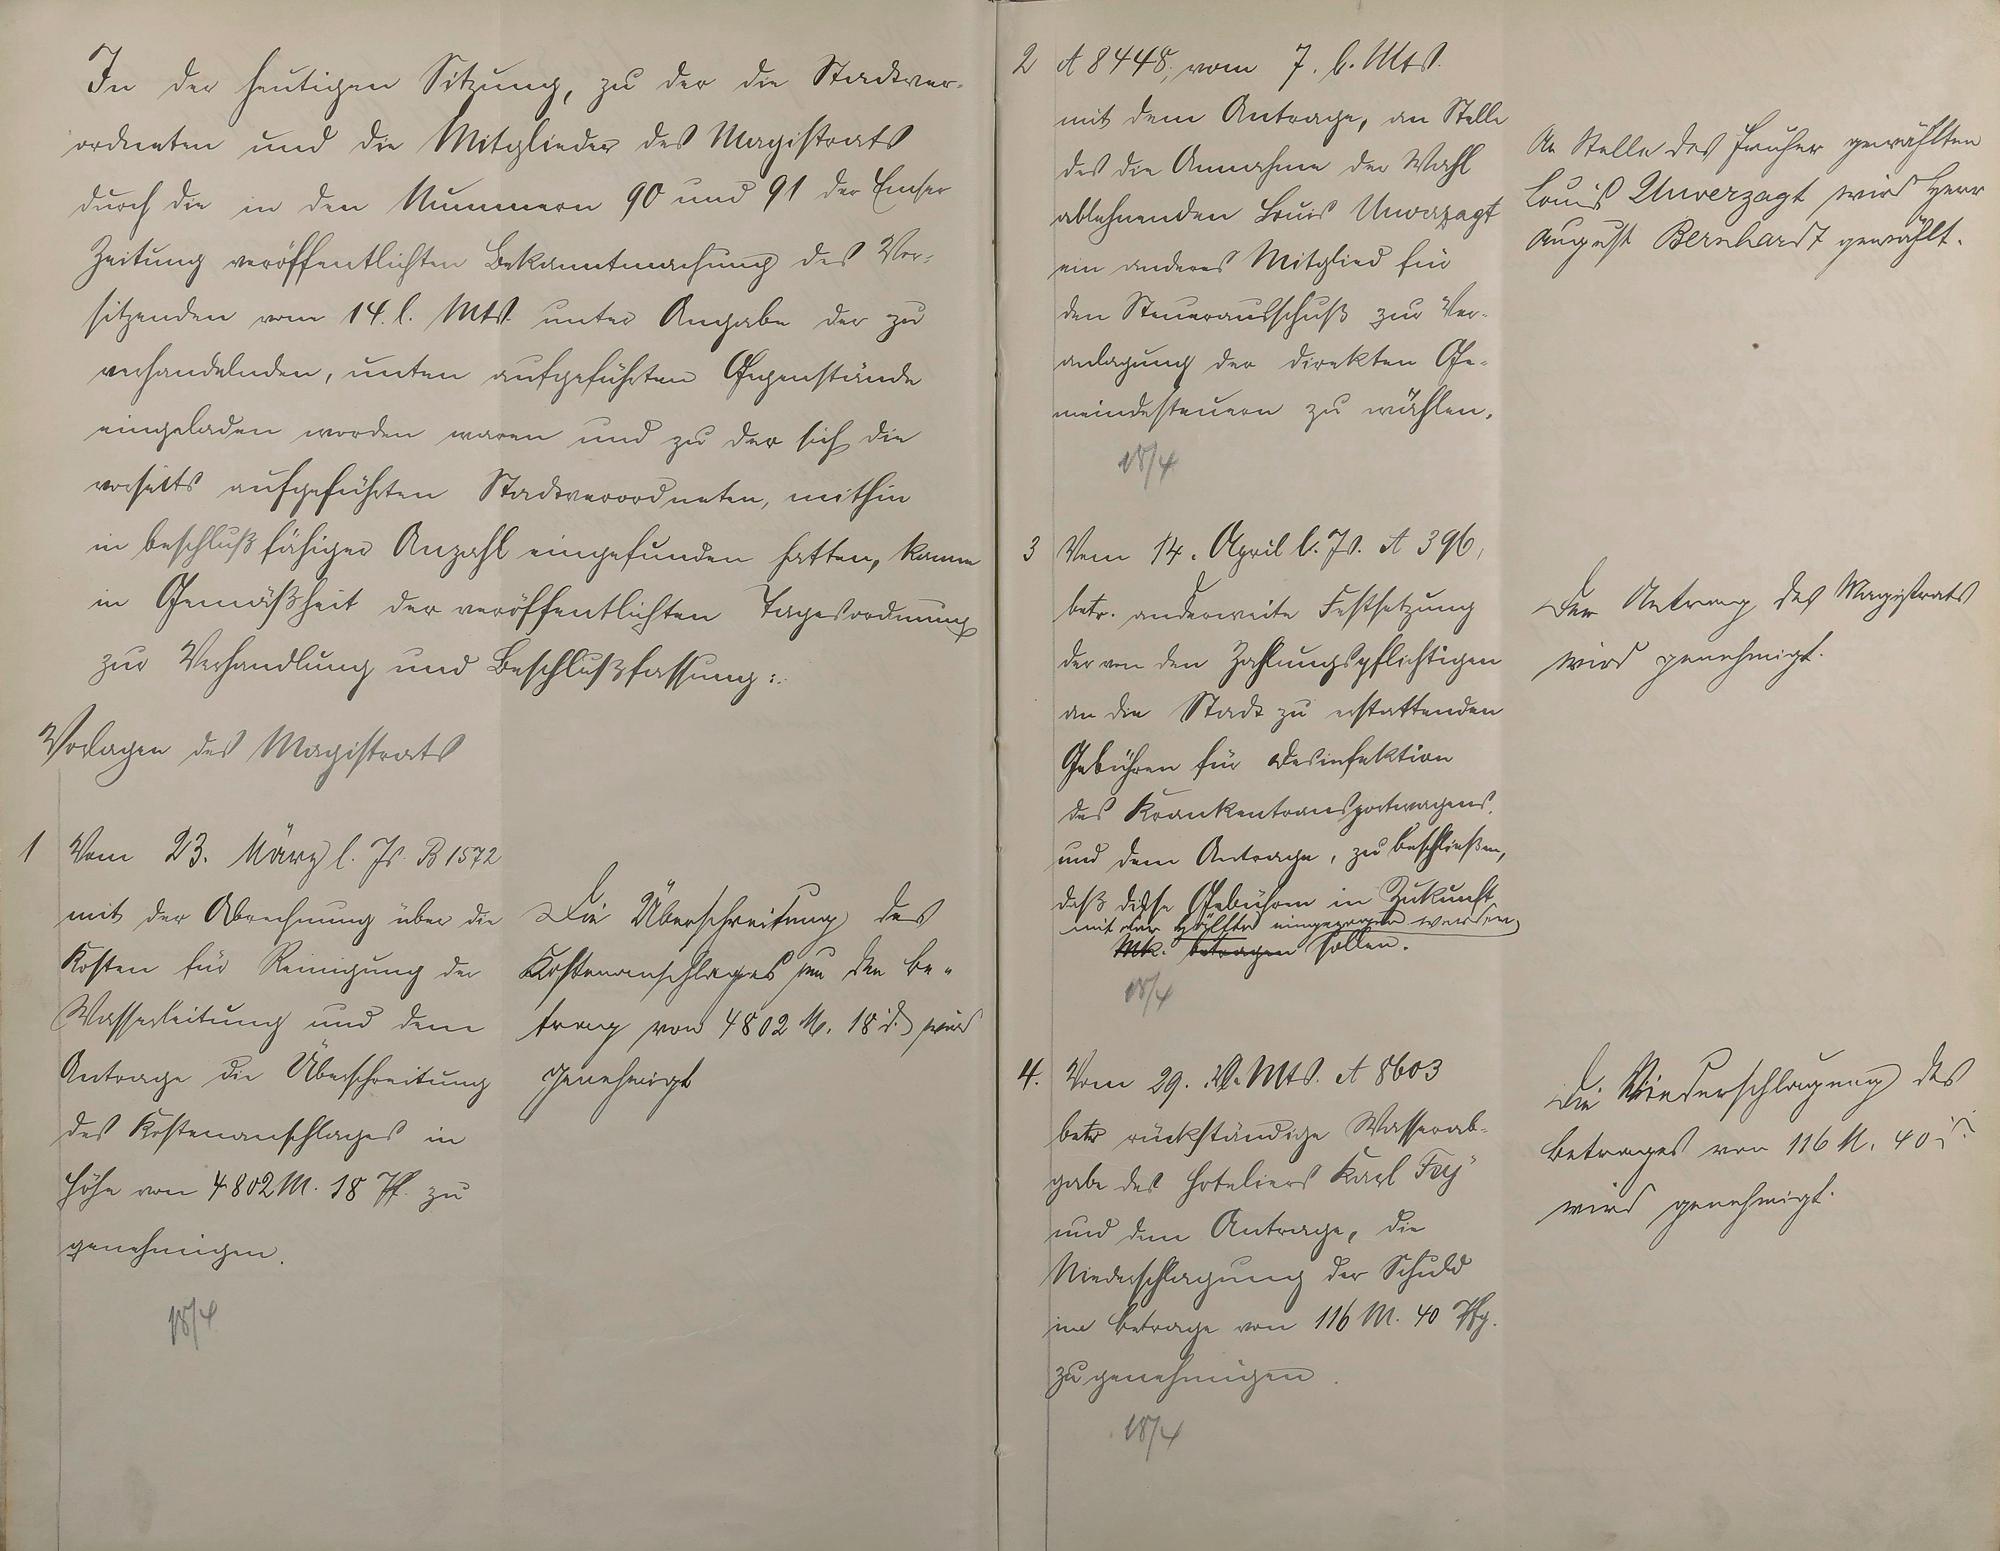 In der heutigen Sitzung, zu der die Stadtver-
ordneten und die Mitglieder des Magistrats
durch die in den Nummern 90 und 91 der Emser
Zeitung veröffentlichten Bekanntmachung des Vor-
sitzenden vom 14. l. Mts. unter Angabe der zu
verhandelnden, unten aufgeführten Gegenstände
eingeladen worden waren und zu der sich die
vorseits aufgeführten Stadtverordneten, mithin
in beschlußfähiger Anzahl eingefunden hatten, kamen
in Gemäßheit der veröffentlichten Tagesordnung
zur Verhandlung und Beschlußfassung:
Vorlagen des Magistrats
1 Vom 23. März l. Js. B 1572
mit der Abrechnung über die
Kosten für Reinigung der
Wasserleitung und dem
Antrage die Überschreitung
des Kostenanschlages in
Höhe von 4802 M. 18 Pf. zu
genehmigen.
18/4
Die Überschreitung des
Kostenanschlages um den Be-
trag von 4802 M. 18 d. wird
genehmigt
2 A 8448, vom 7. l. Mts.
mit dem Antrage, an Stelle
des die Annahme der Wahl
ablehnenden Louis Unverzagt
ein anderes Mitglied für
den Steuerausschuß zur Ver-
anlagung der direkten Ge-
meindesteuern zu wählen.
18/4
An Stelle des früher gewählten
Louis Unverzagt wird Herr
August Bernhardt gewählt.
3 Vom 14. April l. Js. A 396,
betr. anderweite Festsetzung
der von den Zahlungspflichtigen
an die Stadt zu erstattenden
Gebühren für Desinfektion
des Krankentransportwagens
und dem Antrage, zu beschließen,
daß diese Gebühren in Zukunft
mit der Hälfte eingezogen werden
Mk. betragen sollen.
18/4
Der Antrag des Magistrats
wird genehmigt.
4. Vom 29. v. Mts. A 8603
betr rückständige Wasserab-
gabe des Hoteliers Karl
und dem Antrage, die
Niederschlagung der Schuld
im Betrage von 116 M. 40 Pfg.
zu genehmigen.
18/4
Die Niederschlagung des
Betrages von 116 M. 40
wird genehmigt.